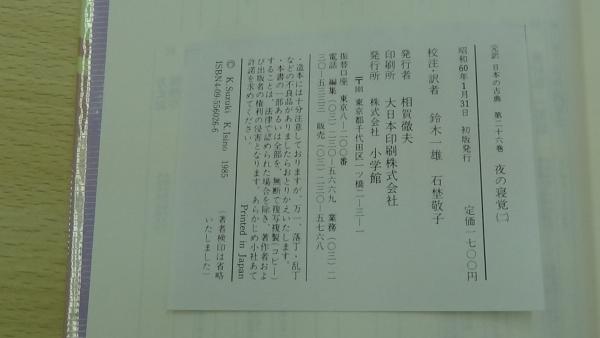 完訳 日本の古典 第二十六巻 夜の寝覚(二)
定価一七〇〇円
昭和60年1月31日 初版発行
校注・訳者 鈴木一雄 石埜敬子
発行者 相賀徹夫
印刷所 大日本印刷株式会社
発行所 株式会社 小学館
〒101 東京都千代田区一ツ橋二-三-一
振替口座 東京八-二〇〇番
電話 編集(〇三)二三〇-五六六九 業務(〇三)二
三〇-五三三三 販売(〇三)二三〇-五七六八
・造本には十分注意しておりますが、万一、落丁・乱丁
などの不良品がありましたらおとりかえいたします。
・本書の一部あるいは全部を、無断で複写複製(コピー)
することは、法律で認められた場合を除き、著作者およ
び出版者の権利の侵害となります。あらかじめ小社あて
許諾を求めてください。
Printed in Japan
(著者検印は省略
いたしました)
© K.Suzuki K.Isino 1985
ISBN4-09-556026-6